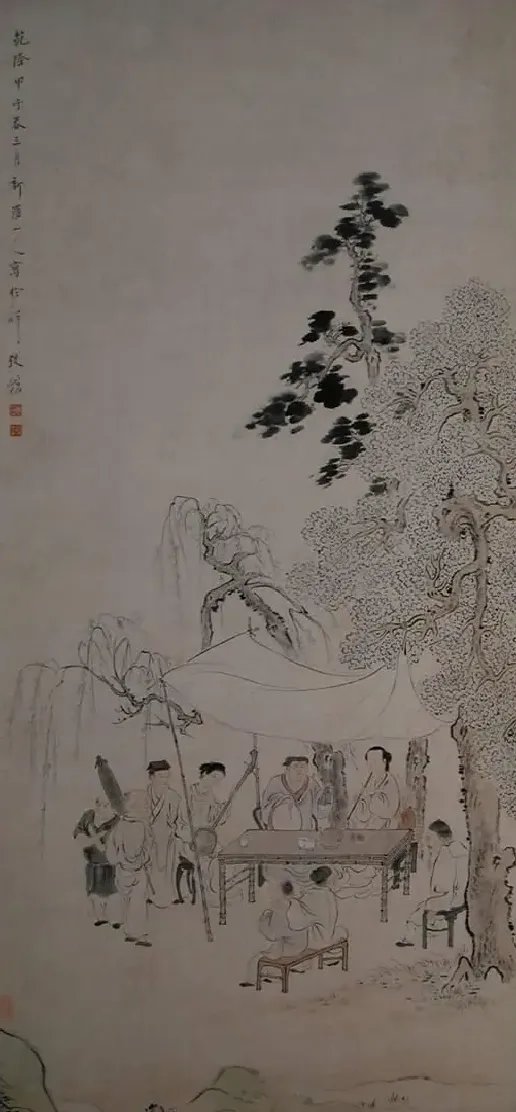 乾隆甲子春三月新羅山人寫於解弢館